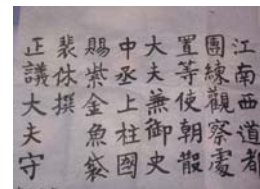 江南西道都
團練觀察處
置等使朝散
大夫兼御史
中丞上柱國
賜紫金魚袋
裴休撰
正議大夫守